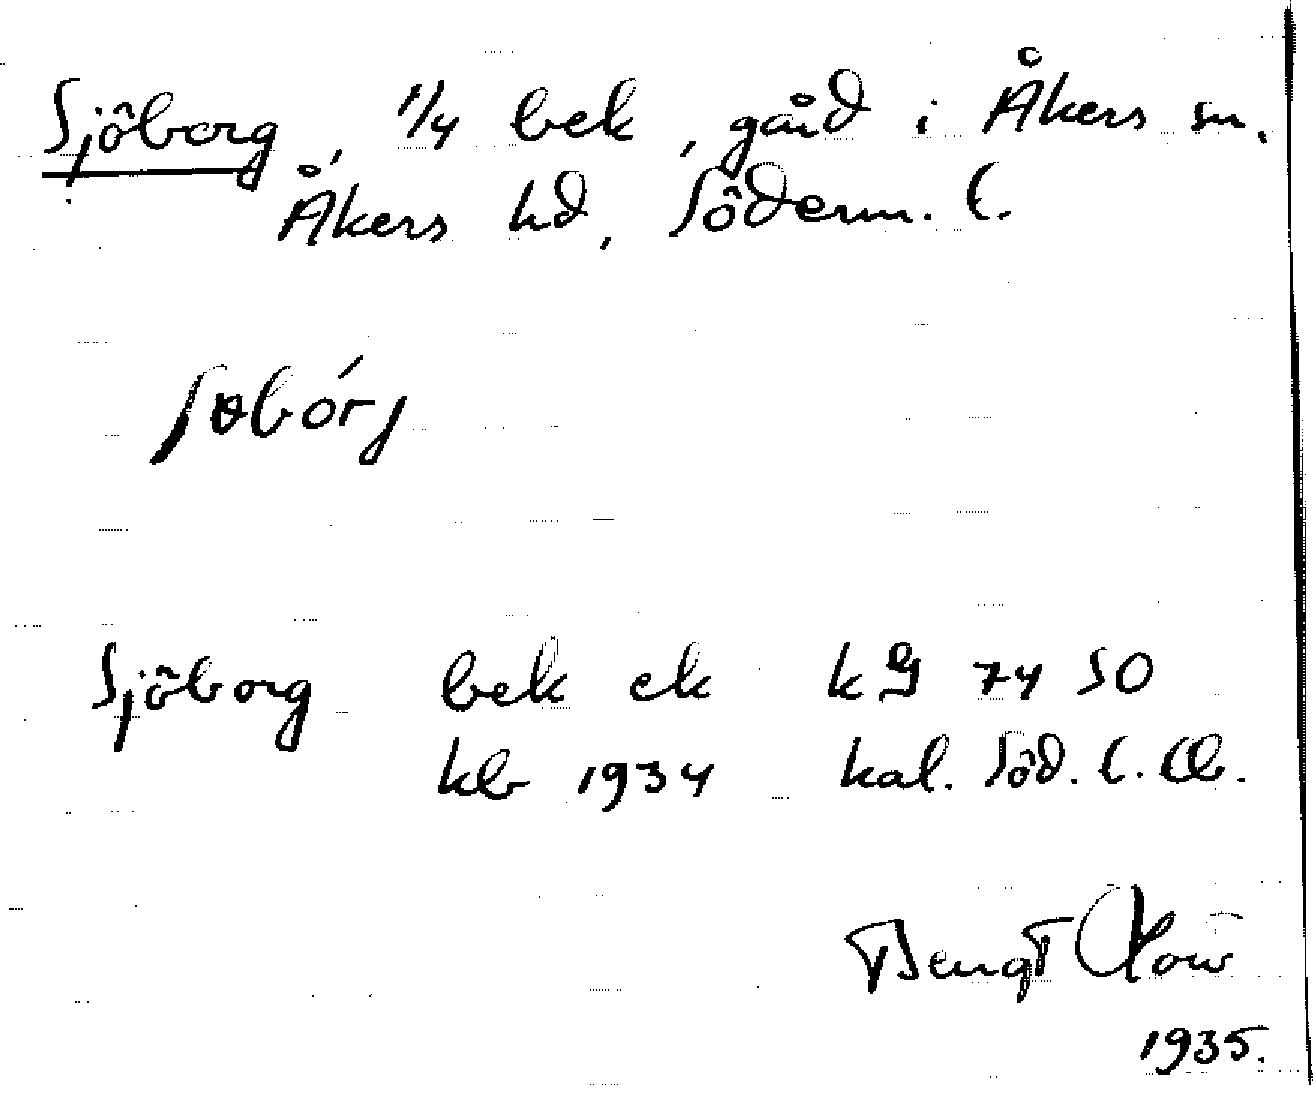 Sjöborg, 1/4 bek, gård i Åkers sn.
Åkers hd, Söderm. l.
Sjöborg bek ek kG 74 SO
klb 1934 kal. Söd. l. Ob.
Bengt
1935.